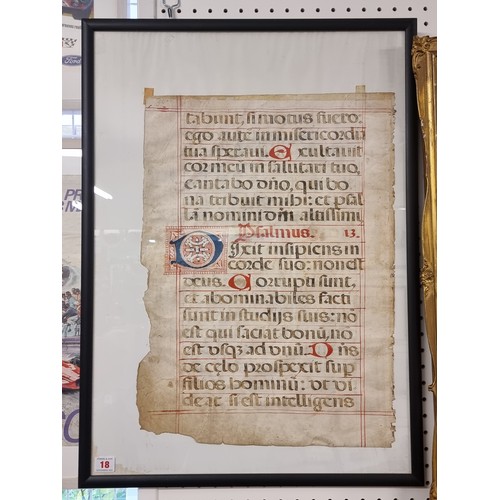 tabunt, si motus fuero:
ego autē in misericordia
tua speraui. Exultauit
cor meū in salutari tuo,
cantabo dño, qui bo
na tribuit mihi: et psal
lā nomini dñi altissimi.
Psalmus. 13.
Dixit insipiens in
corde suo: non est
deus. Corrupti sunt,
et abominabiles facti
sunt in studijs suis: nō
est qui faciat bonū, nō
est vsq; ad vnū. Dñs
de cęlo prospexit sup
filios hominū: vt vi
deat si est intelligens
18
Ford